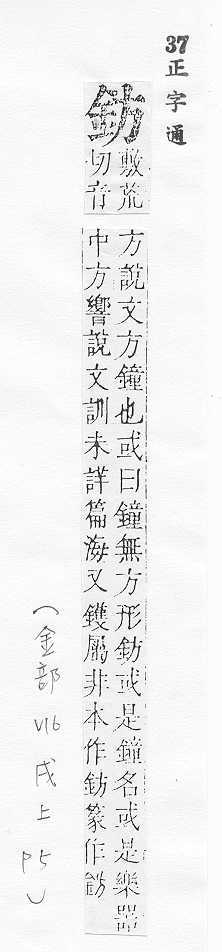 37正字通
鈁
敷荒
切音
方說文方鐘也或曰鐘無方形鈁或是鐘名或是樂器
中方響說文訓未詳篇海又鑊屬非本作鈁篆作鈁
(金部 V16 戌上 P5)